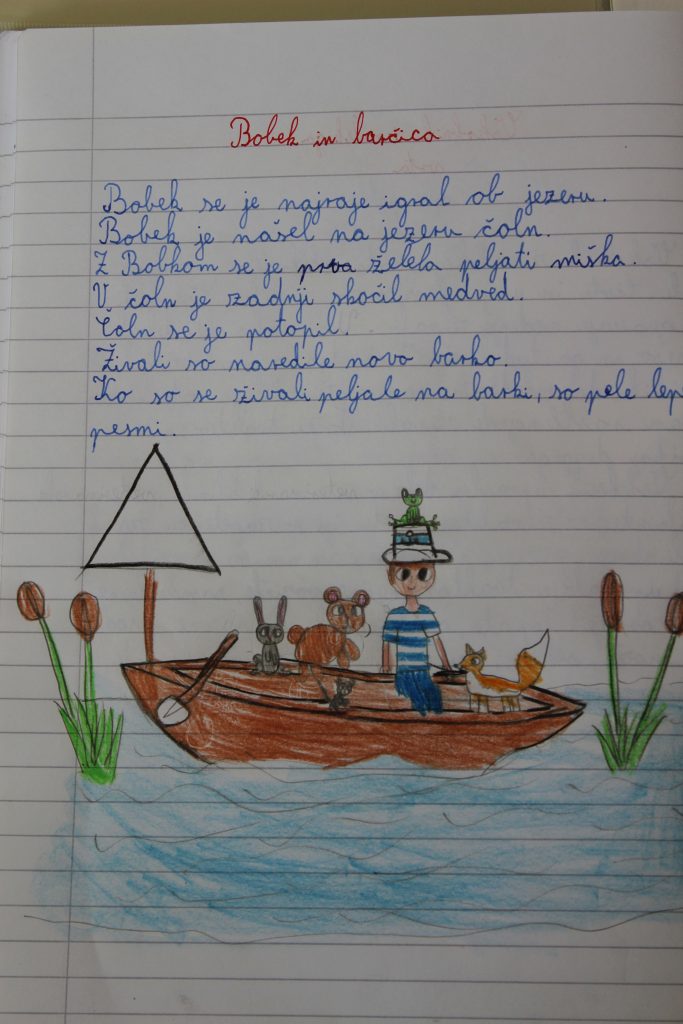 Bobek in barčica
Bobek se je najraje igral ob jezeru.
Bobek je našel na jezeru čoln.
Z Bobkom se je prva želela peljati miška.
V čoln je zadnji skočil medved.
Čoln se je potopil.
Živali so naredile novo barko.
Ko so se živali peljale na barki, so pele lep
pesmi.